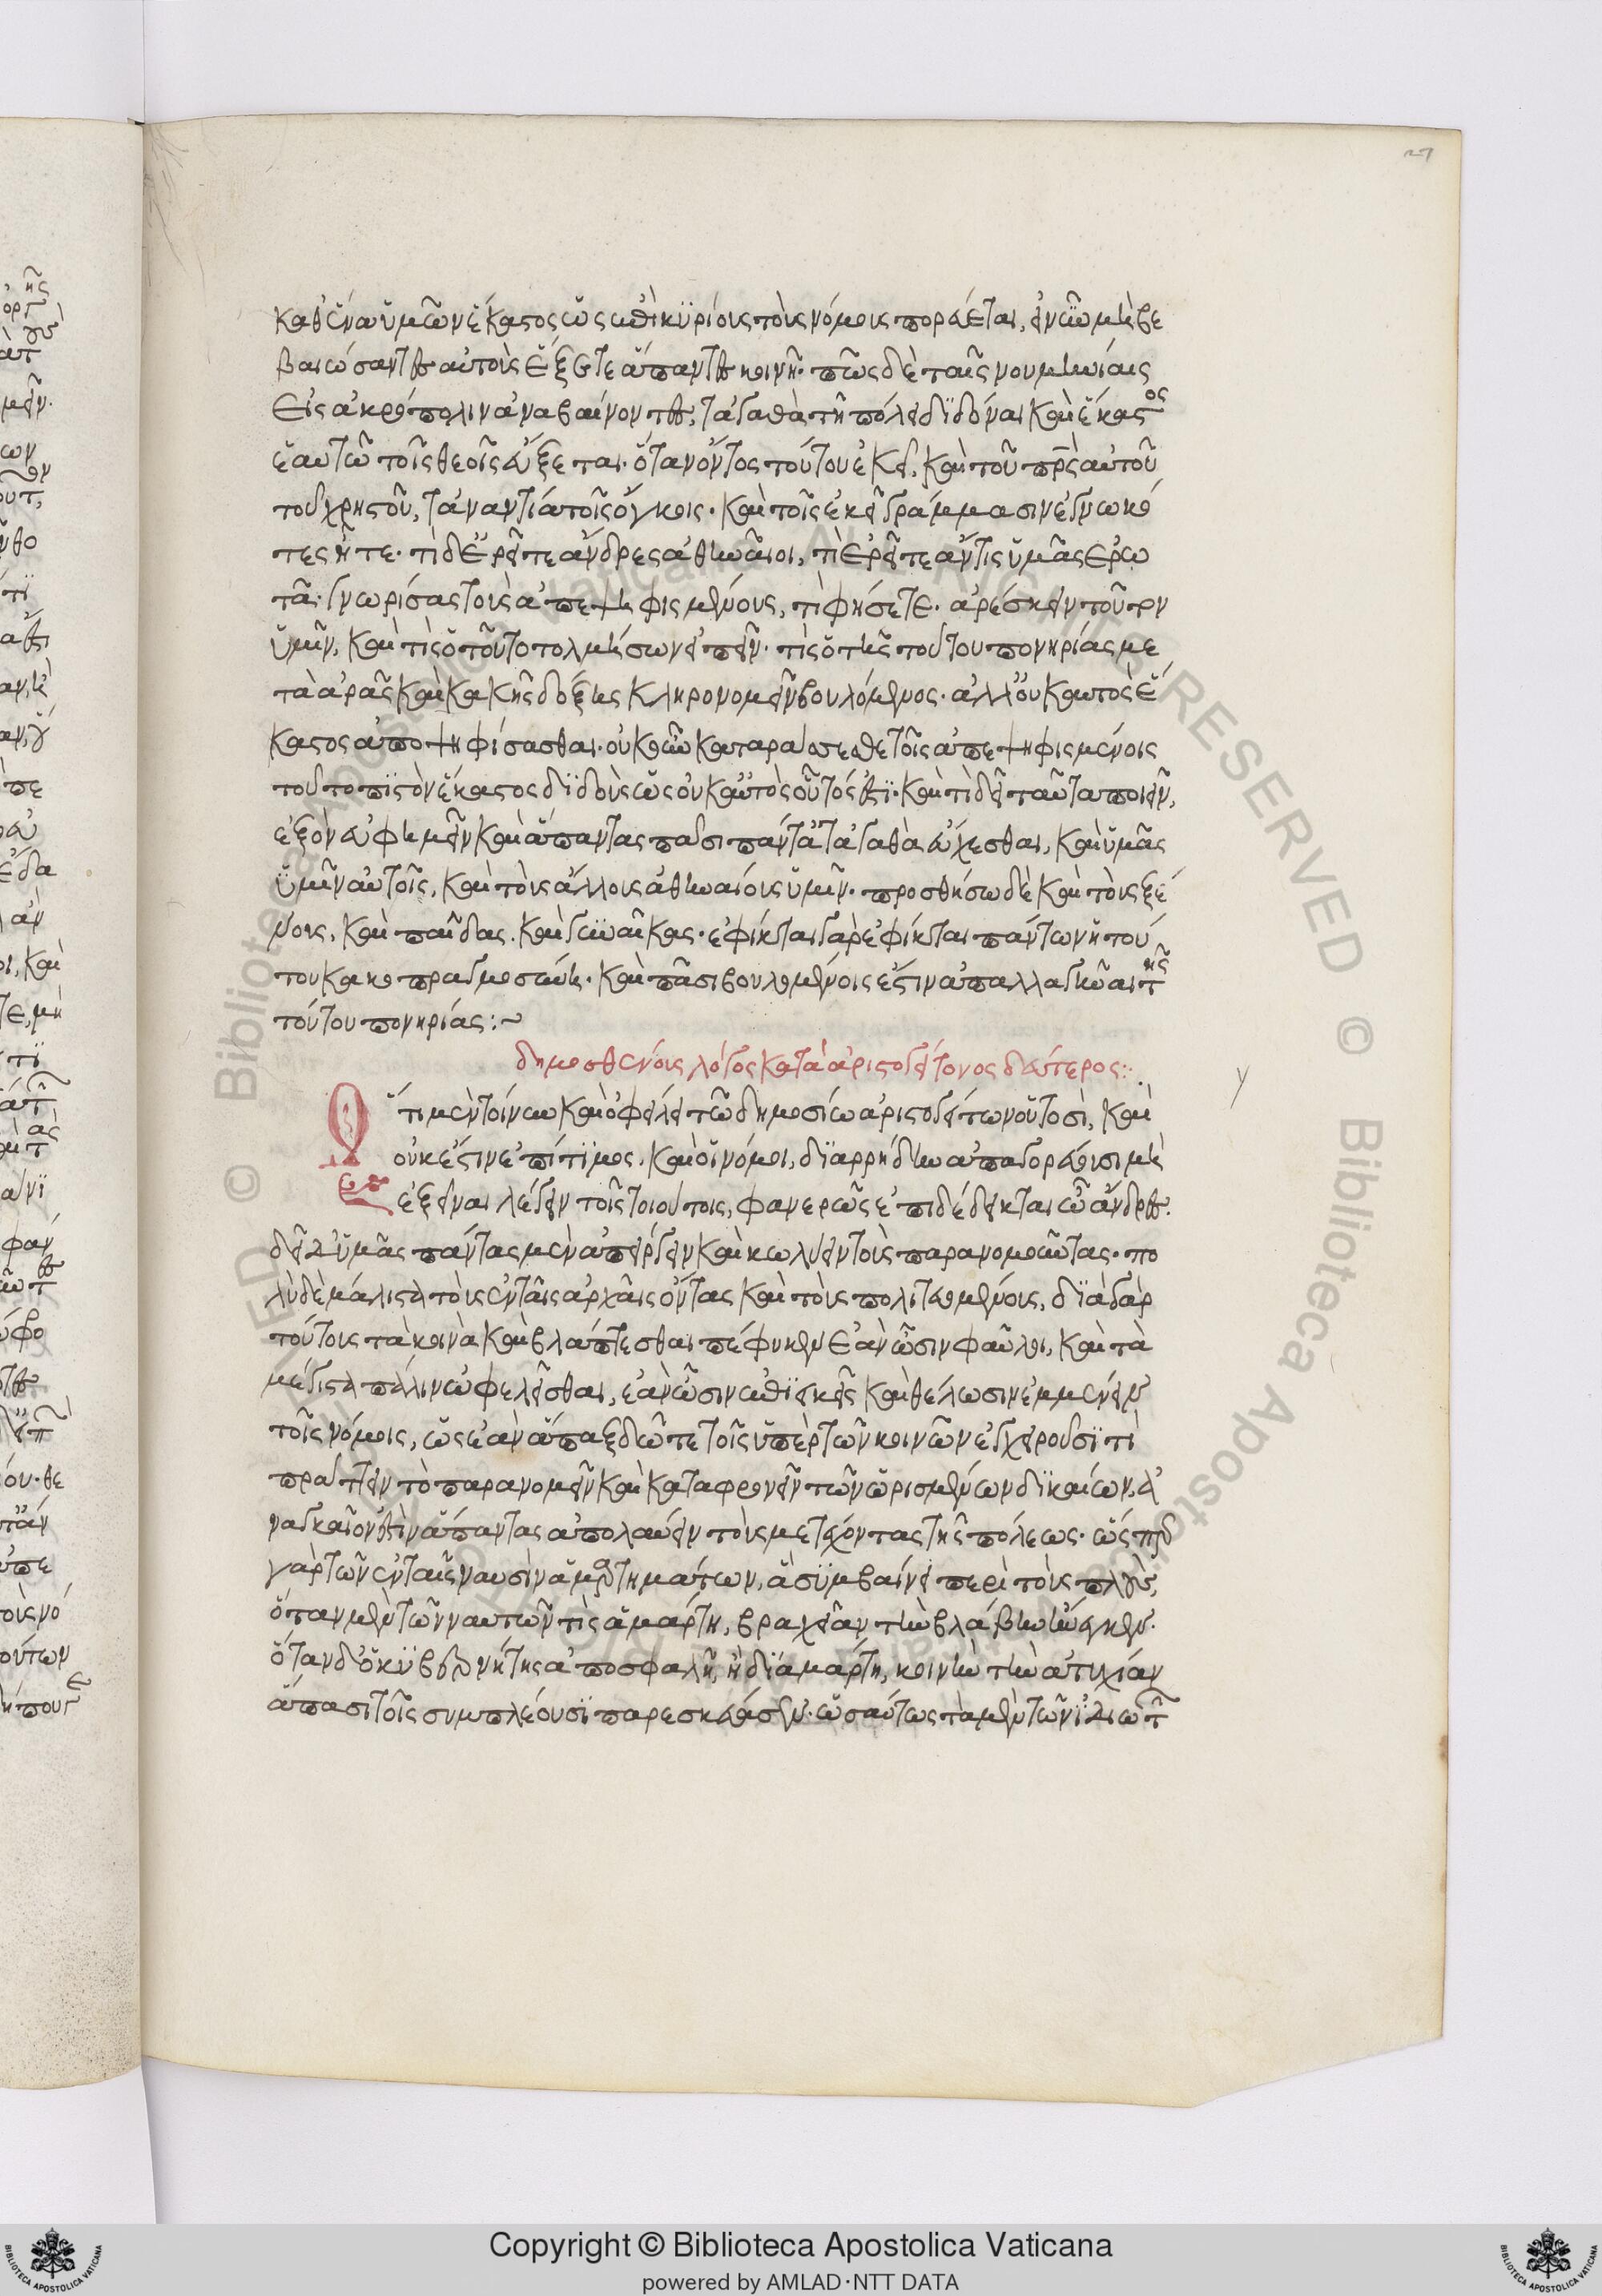 καθ ἕνα ὑμῶν ἕκαστος ὡς ἐπὶ κυρίους τοὺς νόμους πορεύεται, ἐὰν νῦν μὴ βε
βαιώσαντες αὐτοὺς ἔξητε ἅπαντες κοινῆ. πῶς δὲ ταῖς νουμηνίαις
εἰς ἀκρόπολιν ἀναβαίνοντες, τἀγαθὰ τῆ πόλει διδόναι καὶ ἕκαστος
ἑαυτῶ τοῖς θεοῖς εὔξεται. ὅταν ὄντος τούτου ἐκεῖ, καὶ τοῦ πρς αὐτοῦ
τοῦ χρηστοῦ, τἀναντία τοῖς ὅρκοις. καὶ τοῖς ἐκεῖ γράμμασιν ἐγνωκό
τες ἦτε. τί δ' ἐρεῖτε ἄνδρες ἀθηναῖοι, τί ἐρεῖτε ἄν τις ὑμᾶς ἐρω
τᾶ. γνωρίσας τοὺς ἀπεψηφισμένους, τί φήσετε. ἀρέσκειν τοῦτον
ὑμῖν, καὶ τίς ὁ τοῦτο τολμήσων εἰπεῖν. τίς ὁ τῆς τούτου πονηρίας με
τὰ ἀρᾶς καὶ κακῆς δόξης κληρονομεῖν βουλόμενος. ἀλλ' οὐκ αυτὸς ἕ
καστος ἀποψηφίσασθαι. οὐκοῦν καταράσεσθε τοῖς ἀπεψηφισμένοις
τοῦτο πιστὸν ἕκαστος διδοὺς ὡς οὐκ αὐτὸς οὗτός ἐστι. καὶ τί δεῖ ταῦτα ποιεῖν,
ἐξὸν εὐφημεῖν καὶ ἅπαντας πᾶσι πάντα τἀγαθὰ εὔχεσθαι, καὶ ὑμᾶς
ὑμῖν αὐτοῖς, καὶ τοὺς ἄλλους ἀθηναίους ὑμῖν. προσθήσω δὲ καὶ τοὺς ξέ
νους, καὶ παῖδας. καὶ γυναῖκας. ἐφίκται γὰρ ἐφίκται πάντων ἡ τού
του κακοπραγμοσύνη. καὶ πᾶσι βουλομένοις ἐστιν ἀπαλλαγῆναι τῆς
τούτου πονηρίας:~
δημοσθένους λόγος κατὰ ἀριστογείτονος δεύτερος:
Ὅτι μὲν τοίνυν καὶ ὀφείλει τῶ δημοσίω ἀριστογείτων οὑτοσὶ, καὶ
οὐκ ἔστιν ἐπίτιμος. καὶ οἱ νόμοι, διαρρήδην ἀπαγορεύουσι μὴ
ἐξεῖναι λέγειν τοῖς τοιούτοις, φανερῶς ἐπιδέδεικται ὦ ἄνδρες.
δεῖ δ' ὑμᾶς πάντας μὲν ἀπείργειν καὶ κωλύειν τοὺς παρανομοῦντας. πο
λὺ δὲ μάλιστα τοὺς ἐν ταῖς ἀρχαῖς ὄντας καὶ τοὺς πολιτευομένους, διὰ γὰρ
τούτους τὰ κοινὰ καὶ βλάπτεσθαι πέφυκεν ἐὰν ὦσιν φαῦλοι, καὶ τὰ
μέγιστα πάλιν ὠφελεῖσθαι, ἐὰν ὦσιν ἐπιεικεῖς καὶ θέλωσιν ἐμμένειν
τοῖς νόμοις, ὡς ἐὰν ἅπαξ δῶτε τοῖς ὑπὲρ τῶν κοινῶν ἐγχειροῦσί τι
πράττειν τὸ παρανομεῖν καὶ καταφρονεῖν τῶν ὡρισμένων δικαίων, ἀ
ναγκαῖον ἐστὶν ἅπαντας ἀπολαύειν τοὺς μετέχοντας τῆς πόλεως. ὥσπερ
γὰρ τῶν ἐν ταῖς ναυσὶν ἁμαρτημάτων, ἃ συμβαίνει περὶ τοὺς πλοῦς,
ὅταν μὲν τῶν ναυτῶν τὶς ἁμάρτη, βραχεῖαν τὴν βλάβην ἤνεγκεν.
ὅταν δ' ὁ κυβερνήτης ἀποσφαλῆ, ἢ διαμάρτη, κοινὴν τὴν ἀτυχίαν
ἅπασι τοῖς συμπλέουσι παρεσκεύασεν. ὡσαύτως τὰ μὲν τῶν ἰδιωτ